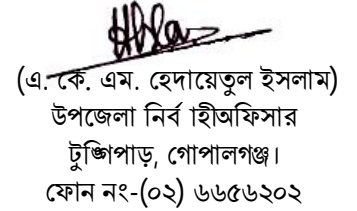 (এ. কে. এম. হেদায়েতুল ইসলাম)
উপজেলা নির্ব াহীঅফিসার
টুঙ্গিপাড়, গোপালগঞ্জ।
ফোন নং-(০২) ৬৬৫৬২০২